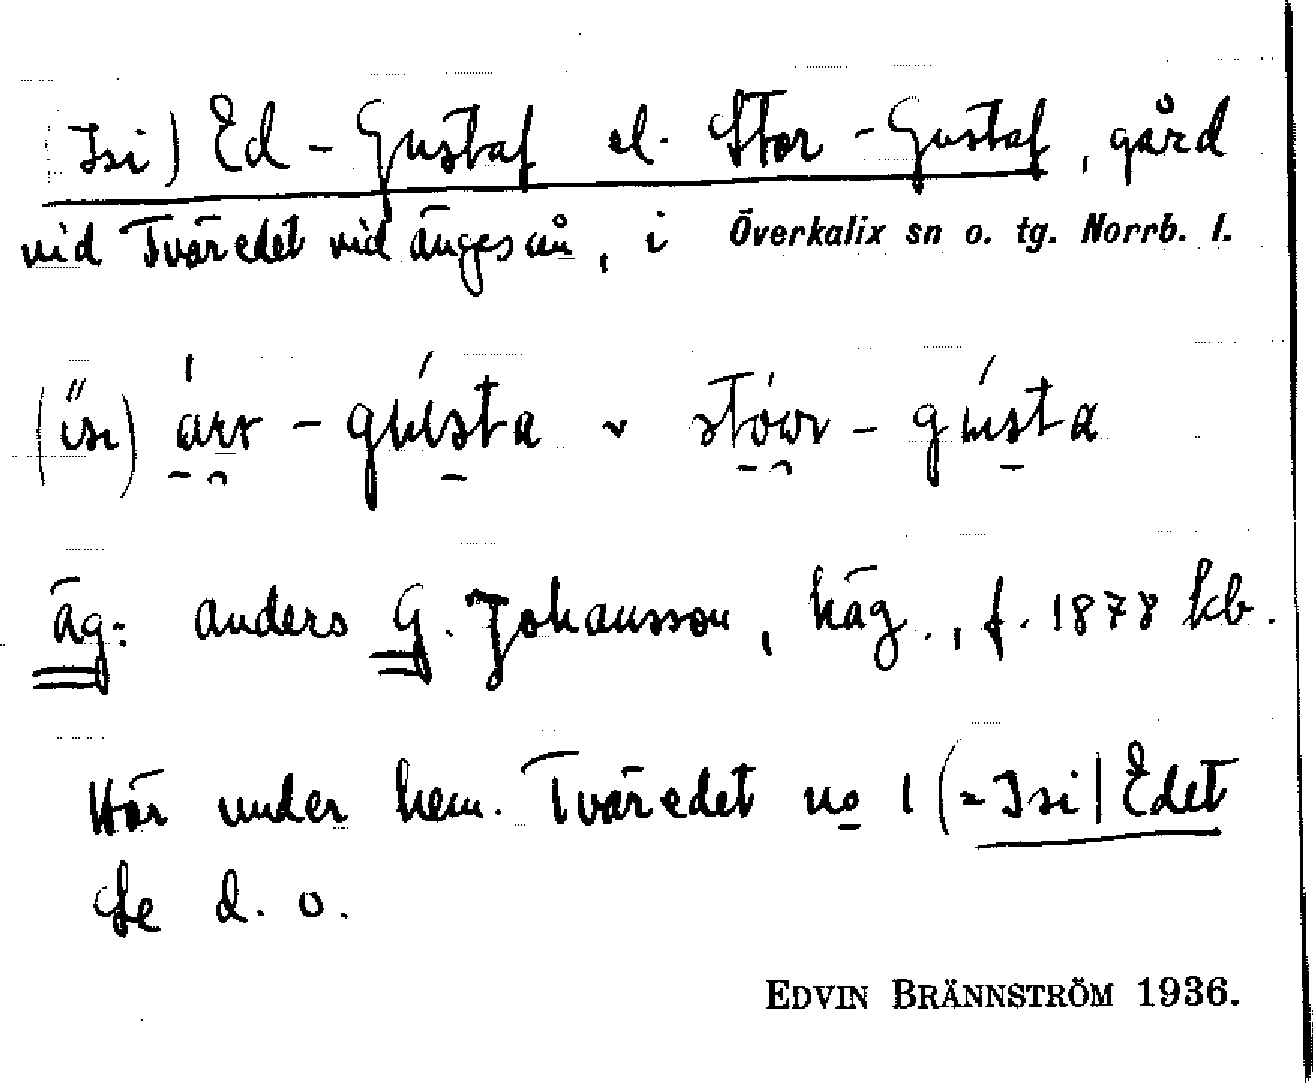 Isi) Ed-Gustaf el. Stor-Gustaf, gård
vid Tväredet vid Ängesån, i Överkalix sn o. tg. Norrb. l.
äg: Anders G. Johansson, häg., f. 1878 kb.
Hör under hem. Tväredet no 1 (= Isi) Edet
Se d. o.
EDVIN BRÄNNSTRÖM 1936.